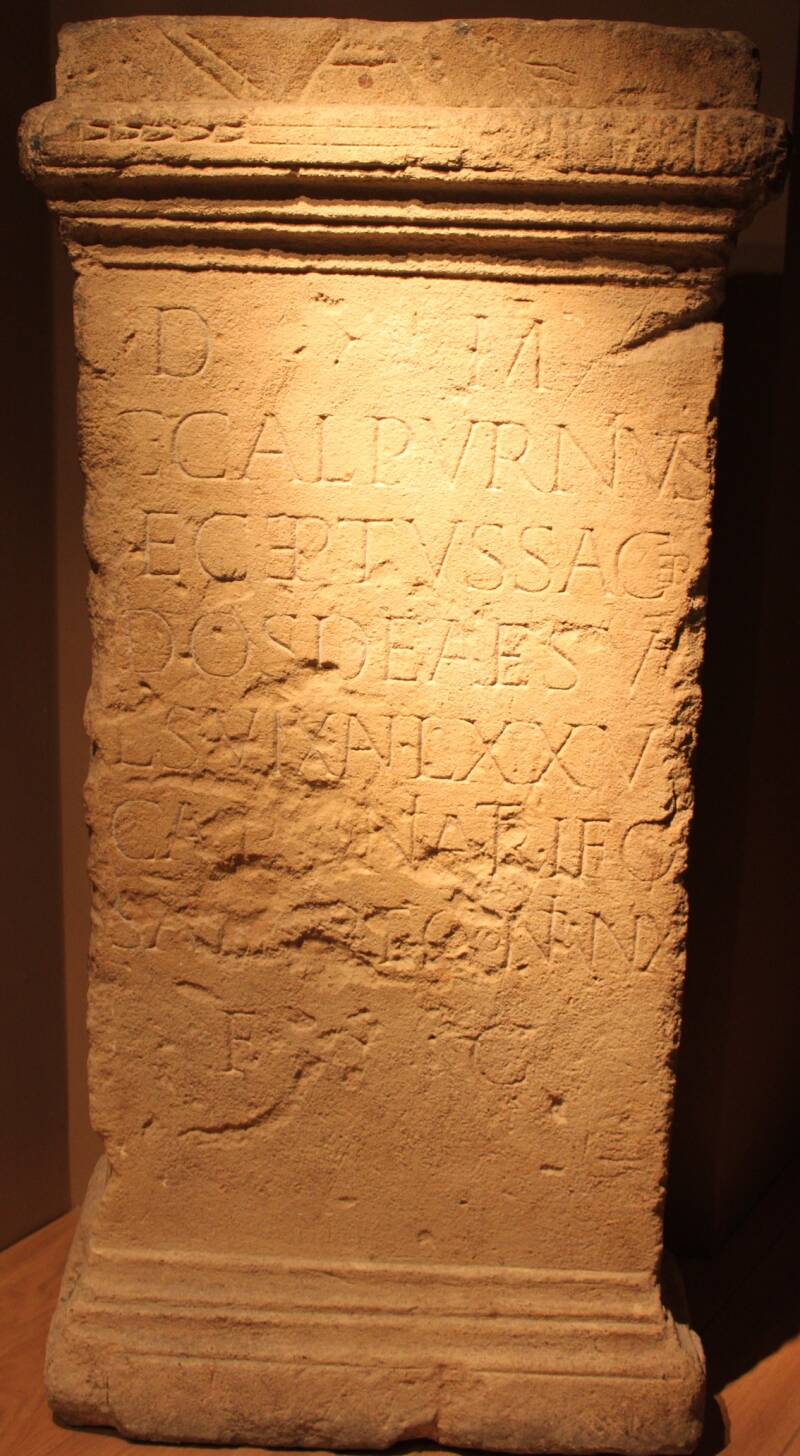 D M
C CALPVRNIVS
RECEPTVS SACER
DOS DEAE SV
LIS VIX AN LXXV
CALPVRNIA TRIFO
SA LIBERT CONIVNX
F C